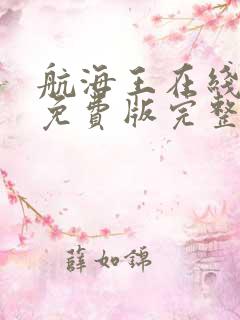 航海王在线
免費版完整
薛如錦